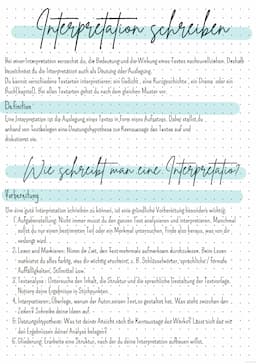 Interpretation schreiben
Bei einer Interpretation versuchst du, die Bedeutung und die Wirkung eines Textes nachzuvollziehen. Deshalb
bezeichnest du die Interpretation auch als Deutung oder Auslegung.
Du kannst verschiedene Textarten interpretieren, ein Gedicht, eine Kurzgeschichte, ein Drama oder ein
Buch(kapitel). Bei allen Textarten gehst du nach dem gleichen Muster vor.
Definition
Eine Interpretation ist die Auslegung eines Textes in Form eines Aufsatzes. Dabei stellst du
anhand von Textbelegen eine Deutungshypothese zur Kernaussage des Textes auf und
diskutierst sie.
Wie schreibt man eine Interpretation?
Vorbereitung
Um eine gute Interpretation schreiben zu können, ist eine gründliche Vorbereitung besonders wichtig.
1. Aufgabenstellung: Nicht immer musst du den ganzen Text analysieren und interpretieren. Manchmal
sollst du nur einen bestimmten Teil oder ein Merkmal untersuchen. Finde also heraus, was von dir
verlangt wird.
2. Lesen und Markieren: Nimm dir Zeit, den Text mehrmals aufmerksam durchzulesen. Beim Lesen
markierst du alles farbig, was dir wichtig erscheint, z. B. Schlüsselwörter, sprachliche / formale
Auffälligkeiten, Stilmittel usw.
3. Textanalyse: Untersuche den Inhalt, die Struktur und die sprachliche Gestaltung der Textvorlage.
Notiere deine Ergebnisse in Stichpunkten.
4. Interpretation: Überlege, warum der Autor seinen Text so gestaltet hat. Was steht zwischen den
Zeilen? Schreibe deine Ideen auf.
5. Deutungshypothese: Was ist deiner Ansicht nach die Kernaussage des Werks? Lässt sich das mit
den Ergebnissen deiner Analyse belegen?
6. Gliederung: Erarbeite eine Struktur, nach der du deine Interpretation aufbauen willst.